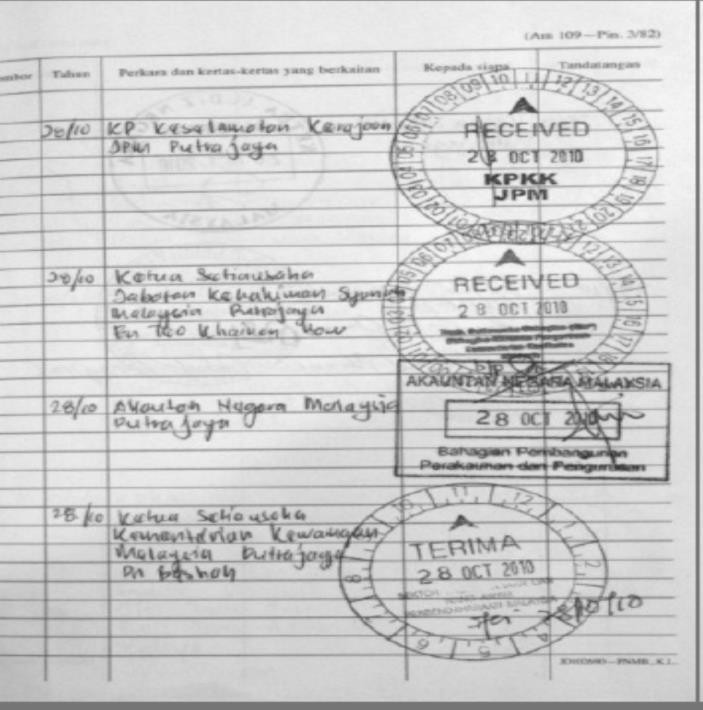 (Am 109—Pin. 3/82)
Tahun Perkara dan kertas-kertas yang berkaitan Kepada siapa Tandatangan
28/10 KP Keselamatan Kerajaan
JPM Putrajaya
RECEIVED
28 OCT 2010
KPKK
JPM
28/10 Ketua Setiausaha
Jabatan Kehakiman Syariah
Malaysia Putrajaya
En Teo
RECEIVED
28 OCT 2010
28/10 Akauntan Negara Malaysia
Putrajaya
AKAUNTAN NEGARA MALAYSIA
28 OCT 2010
Bahagian Pembangunan
Perakaunan dan Pengurusan
28/10 Ketua Setiausaha
Kementerian Kewangan
Malaysia Putrajaya
Pn
TERIMA
28 OCT 2010
28/10/10